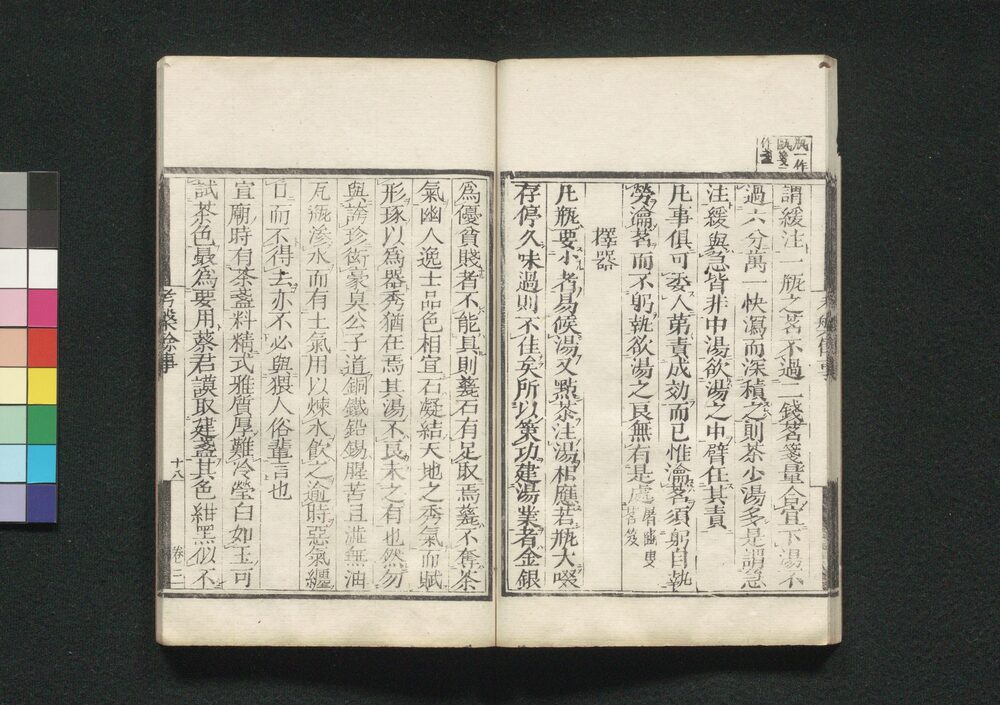 瓶一作
作
謂緩注一瓶之茗不過二錢茗盞量合宜下湯不
過六分萬一快瀉而深積之則茶少湯多是謂急
注緩與急皆非中湯欲湯之中臂任其責
凡事俱可委人第責成効而已惟瀹茗須躬自執
勞瀹茗而不躬執欲湯之良無有是處
擇器
凡瓶要小者易候湯又點茶注湯相應若瓶大啜
存停久味過則不佳矣所以策功建湯業者金銀
為優貧賤者不能具則甆石有足取焉甆瓶不奪茶
氣幽人逸士品色相宜石凝結天地之秀氣而賦
形琢以為器秀猶在焉其湯不良未之有也然勿
與誇珍衒豪臭公子道銅鐵鉛錫腥苦且澁無油
瓦瓶滲水而有土氣用以煉水飲之逾時惡氣纏
口而不得去亦不必與猥人俗輩言也
宣廟時有茶盞料精式雅質厚難冷瑩白如玉可
試茶色最為要用蔡君謨取建盞其色紺黑似不
考槃餘事
十八
卷三